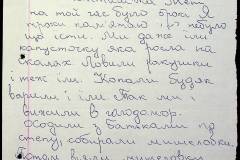 на той час було брак
держи пам'ятаю що небуло
що їсти. Ми даже їли
капусточку яка росла на
скалах. Ловили ракушки
і теж їли. Копали будяк
варили і їли. Так ми і
вижили в голодомор.
Ходили з батьками по
степу, собирали мишеловки.
Потом